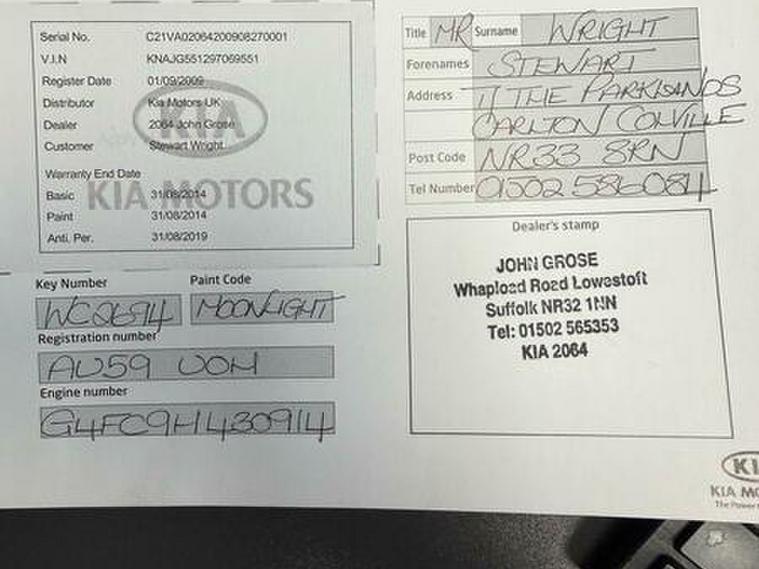 Serial No. C21VA02064200908270001
V.I.N KNAJG551297069551
Register Date 01/09/2009
Distributor Kia Motors UK
Dealer 2064 John Grose
Customer Stewart Wright
Warranty End Date
Basic 31/08/2014
Paint 31/08/2014
Anti. Per. 31/08/2019
KIA
KIA MOTORS
Key Number Paint Code
WC2694 MOONLIGHT
Registration number
AU59 UOH
Engine number
G4FC9H430914
Title MR Surname WRIGHT
Forenames STEWART
Address 11 THE PARKLANDS
CARLTON COLVILLE
Post Code NR33 8RN
Tel Number 01502 586084
Dealer's stamp
JOHN GROSE
Whapload Road Lowestoft
Suffolk NR32 1NN
Tel: 01502 565353
KIA 2064
KIA MO
The Power